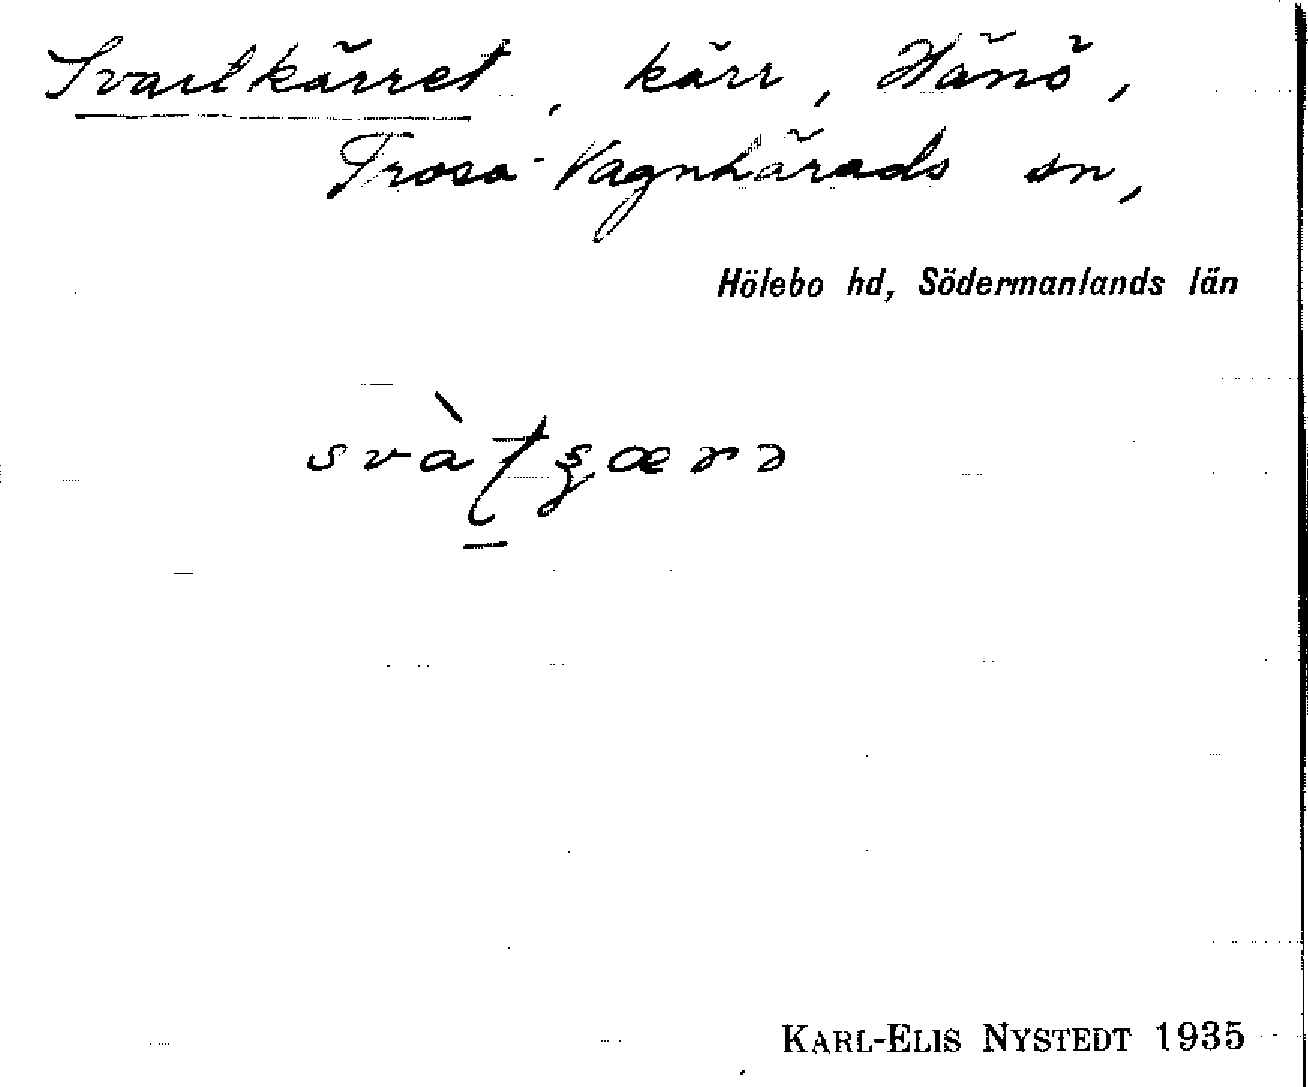 Svartkärret, kärr, Hånö,
Trosa-Vagnhärads sn,
Hölebo hd, Södermanlands län
KARL-ELIS NYSTEDT 1935